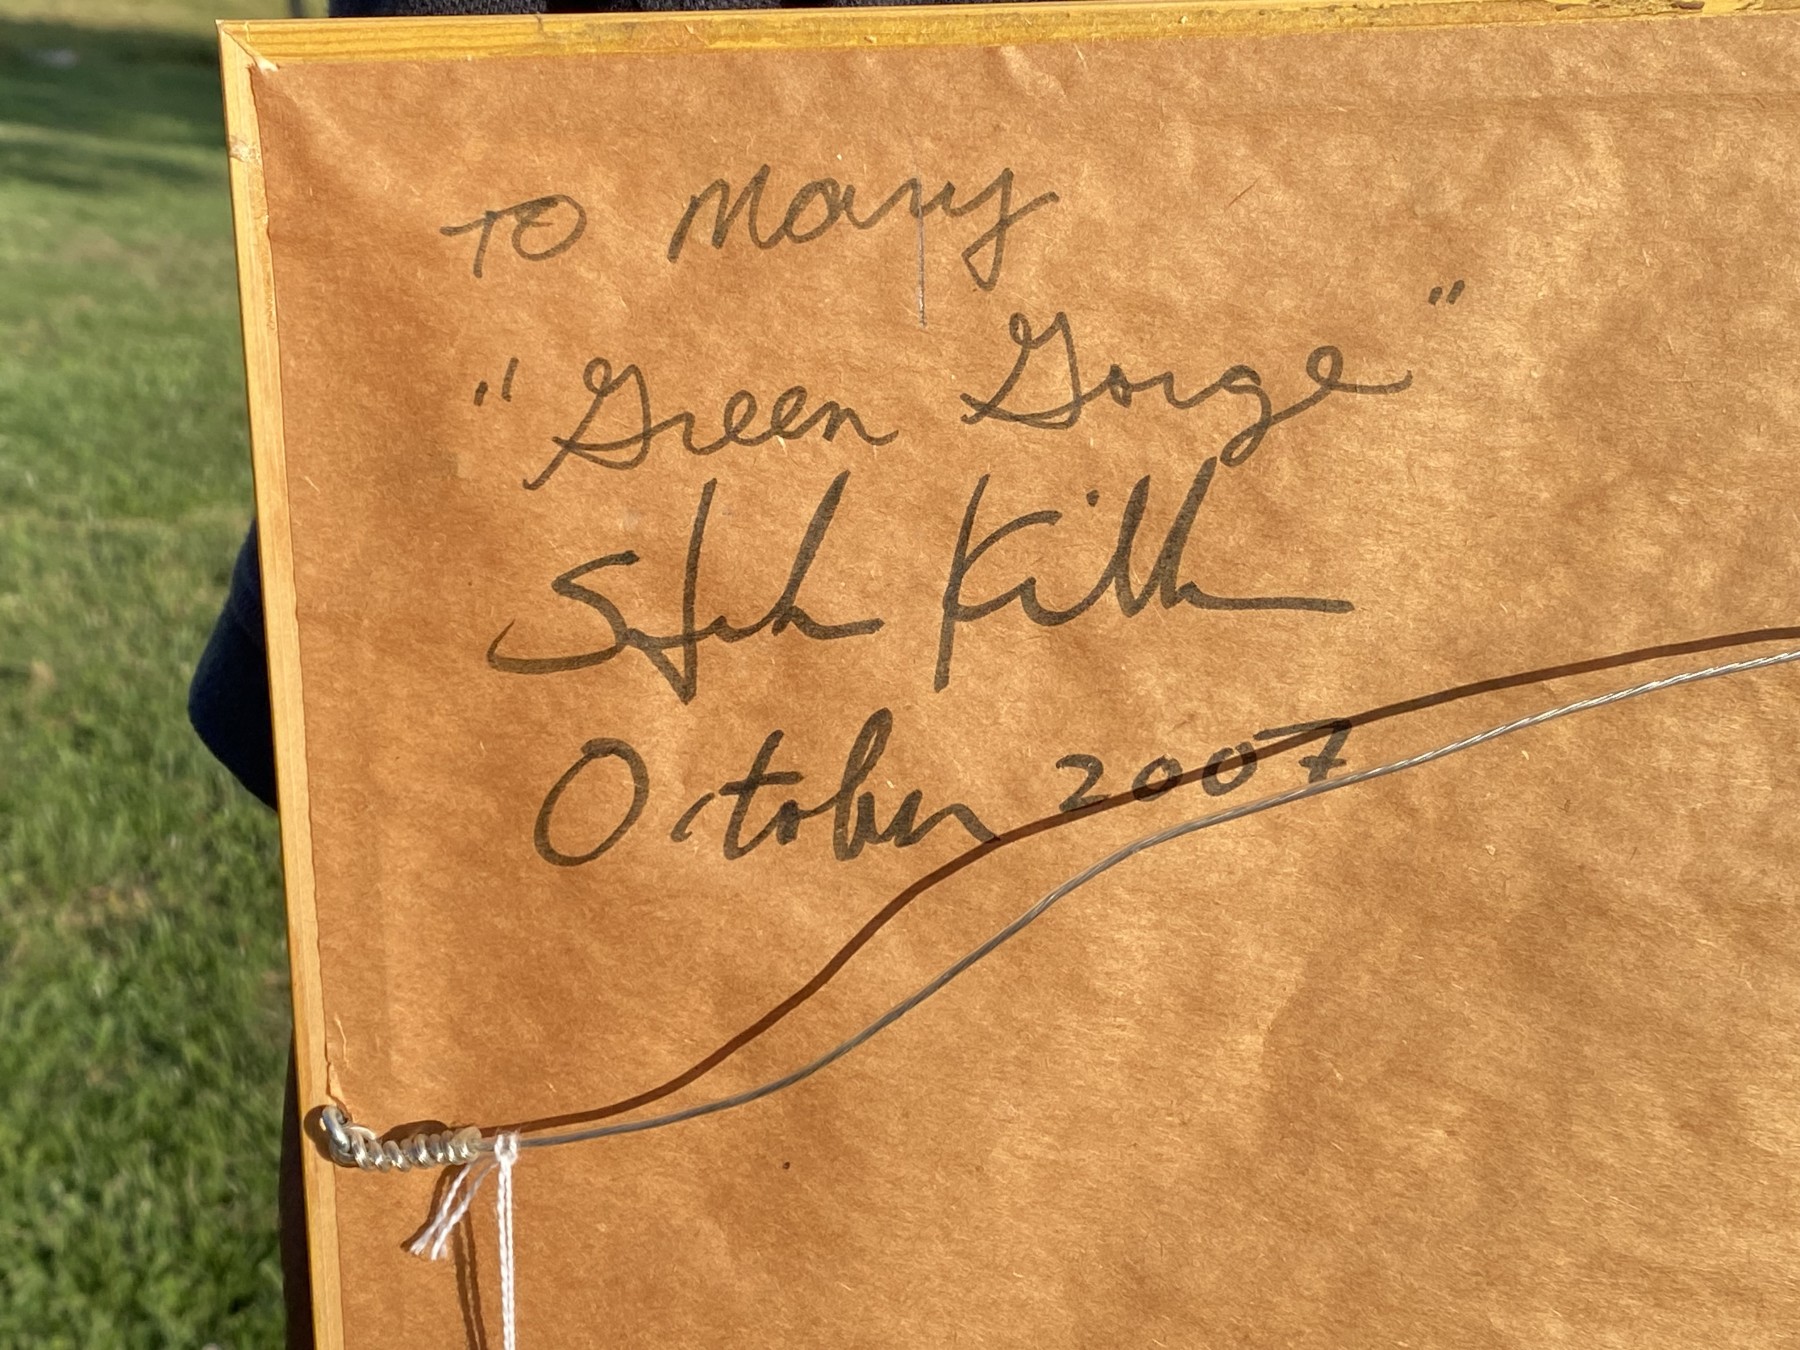 TO Mary
"Green Gorge"
Stephen Kill
October 2007